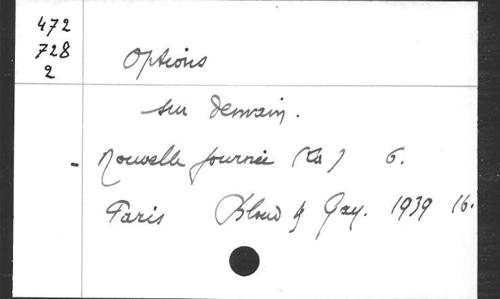 472
728
2
Options
sur demain.
- Nouvelle Journée (La) 6.
Paris Bloud & Gay. 1939 16.